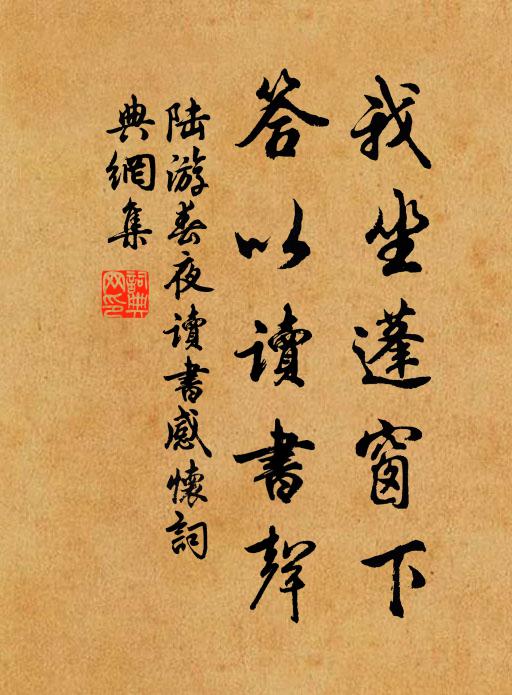 我坐蓬窗下
答以讀書聲
陆游春夜读書感懷詞
典網集
詞典
网印